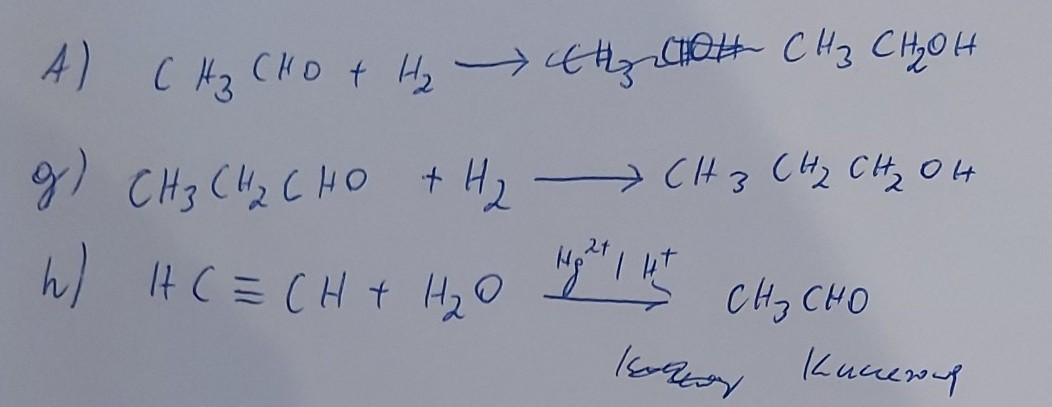 A) CH3CHO + H2 → CH3CH2OH
g) CH3CH2CHO + H2 → CH3CH2CH2OH
h) HC≡CH + H2O Hg2+/H+ → CH3CHO